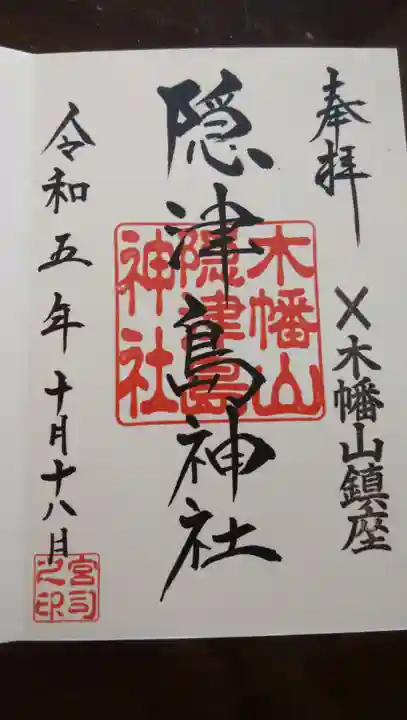 奉拝
〆木幡山鎮座
隠津島神社
木幡山
隠津島
神社
令和五年十月十八日
宮司
之印